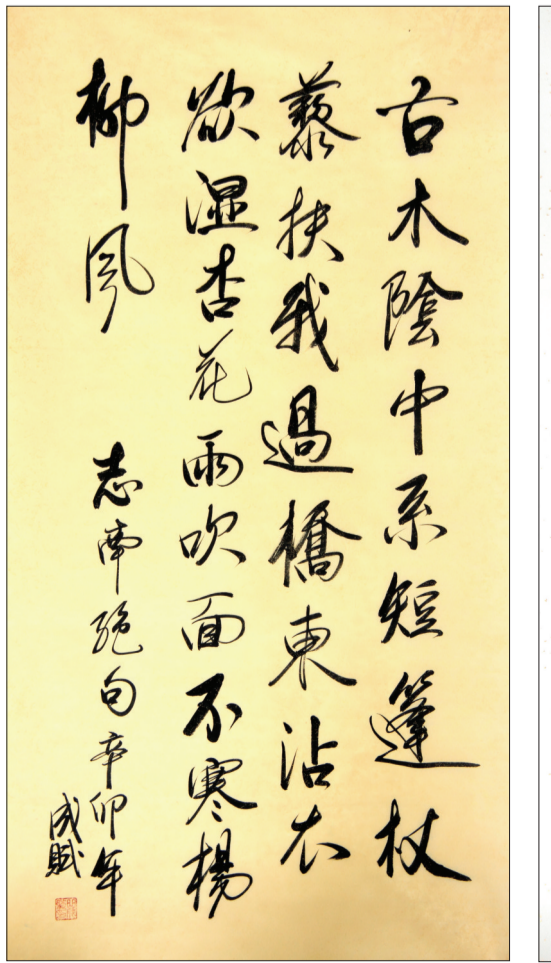 古木陰中系短篷杖
藜扶我過橋東沾衣
欲濕杏花雨吹面不寒楊
柳風
志南絕句辛卯年
成賦